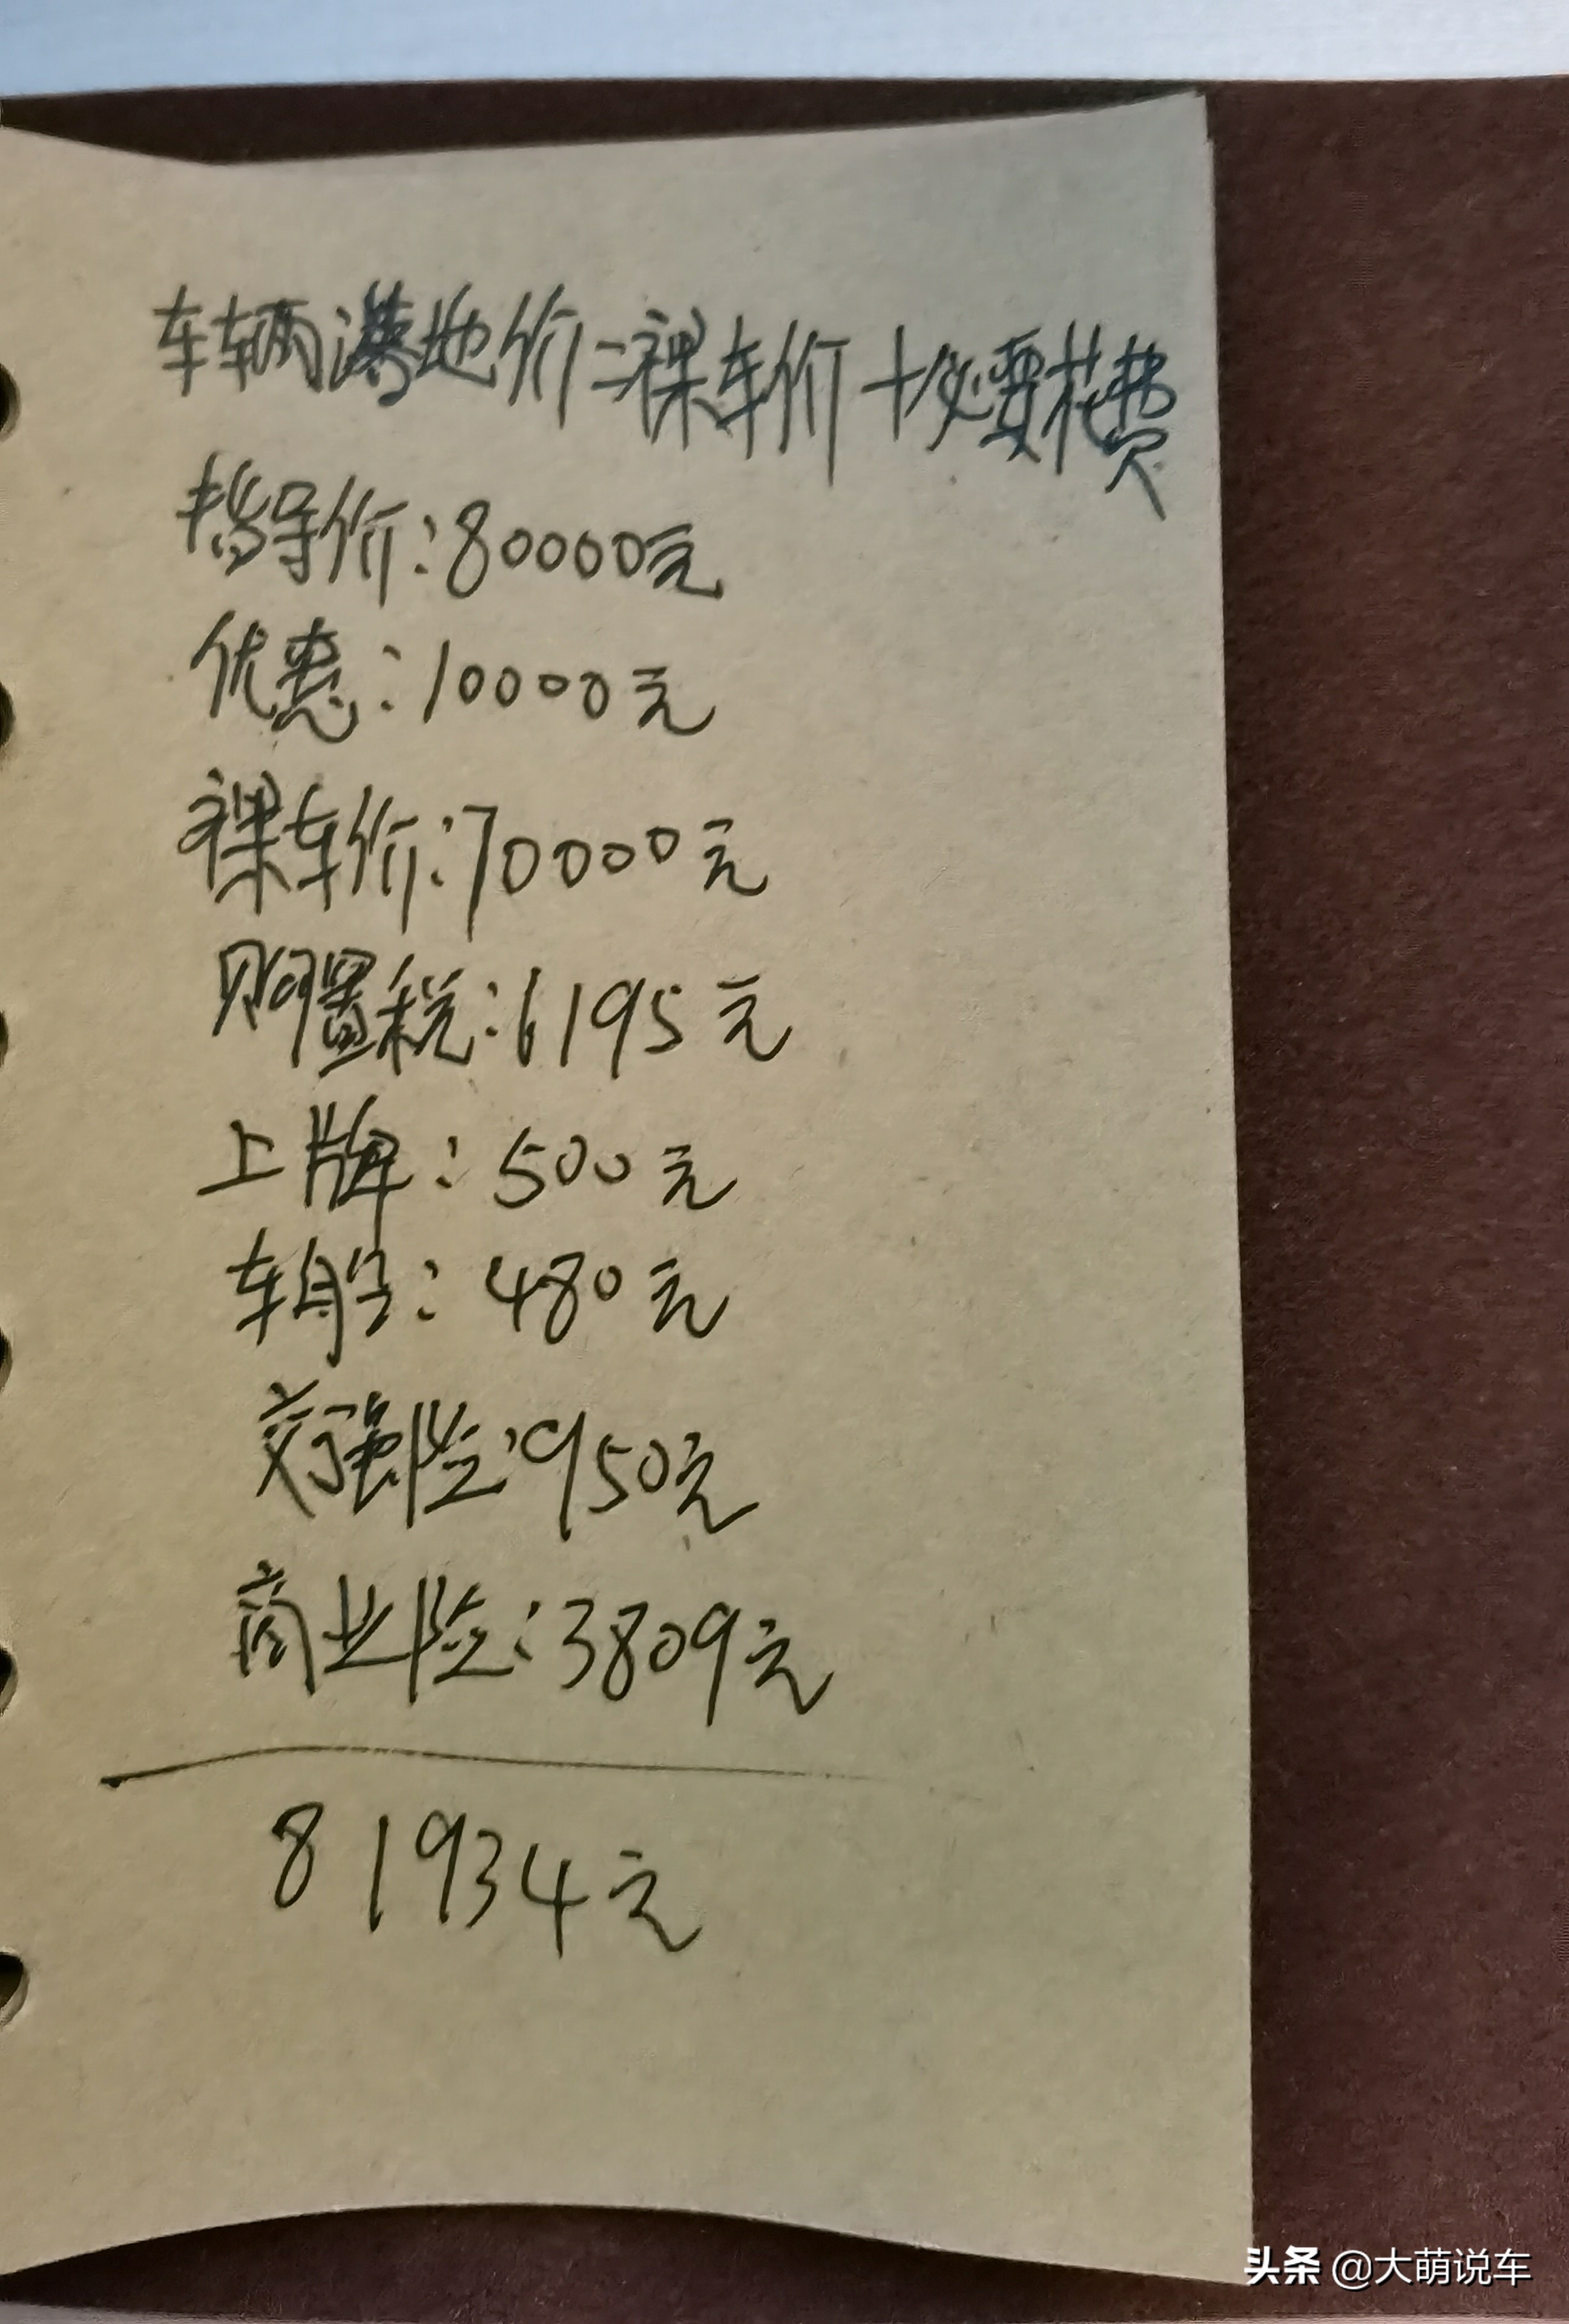 车辆落地价=裸车价+必要花费
指导价:80000元
优惠:10000元
裸车价:70000元
购置税:6195元
上牌:500元
车船:480元
交强险:950元
商业险:3809元
81934元
头条 @大萌说车